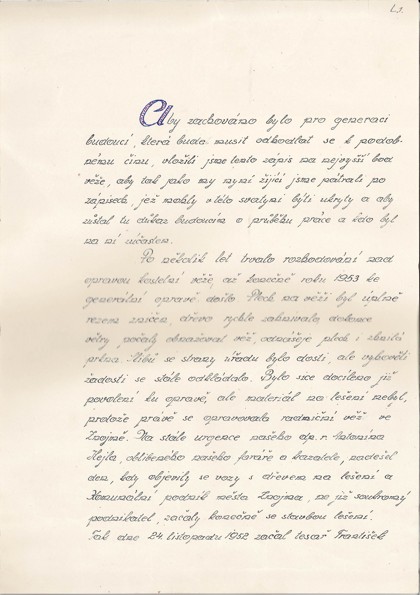 L3.
Aby zachováno bylo pro generaci
budoucí, která bude musit odhodlat se k podob-
nému činu, vložili jsme tento zápis na nejvyšší bod
věže, aby tak jako my nyní žijící jsme pátrali po
zápisech, jež mohly v této svatyni býti ukryty a aby
zůstal tu důkaz budoucím o průběhu práce a kdo byl
na ní účasten.
Po několik let trvalo rozhodování nad
opravou kostelní věže, až konečně roku 1953 ke
generální opravě došlo. Plech na věži byl úplně
rezem zničen, dřevo rychle zahnívalo, dokonce
větry počaly obnažovat věž, odnášeje plech i shnilá
prkna. Slibů se strany úřadu bylo dosti, ale vyhovění
žádosti se stále odkládalo. Bylo sice docíleno již
povolení ku opravě, ale materiál na lešení nebyl,
protože právě se opravovala radniční věž ve
Znojmě. Na stálé urgence našeho dp. r. Antonína
Hejla, oblíbeného našeho faráře a kazatele, nadešel
den, kdy objevily se vozy s dřevem na lešení a
Komunální podnik města Znojma, ne již soukromý
podnikatel, začaly konečně se stavbou lešení.
Tak dne 24. listopadu 1952 začal tesař František